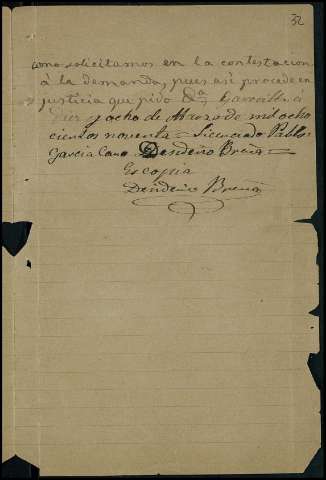 32
como solicitamos en la contestacion
á la demanda, pues asi procede en
justicia que pido &ª Garcilla á
diez y ocho de Marzo de mil ocho
cientos noventa = Licenciado Pablo
Garcia Cano = Desiderio Brena =
Es copia
Desiderio Brena